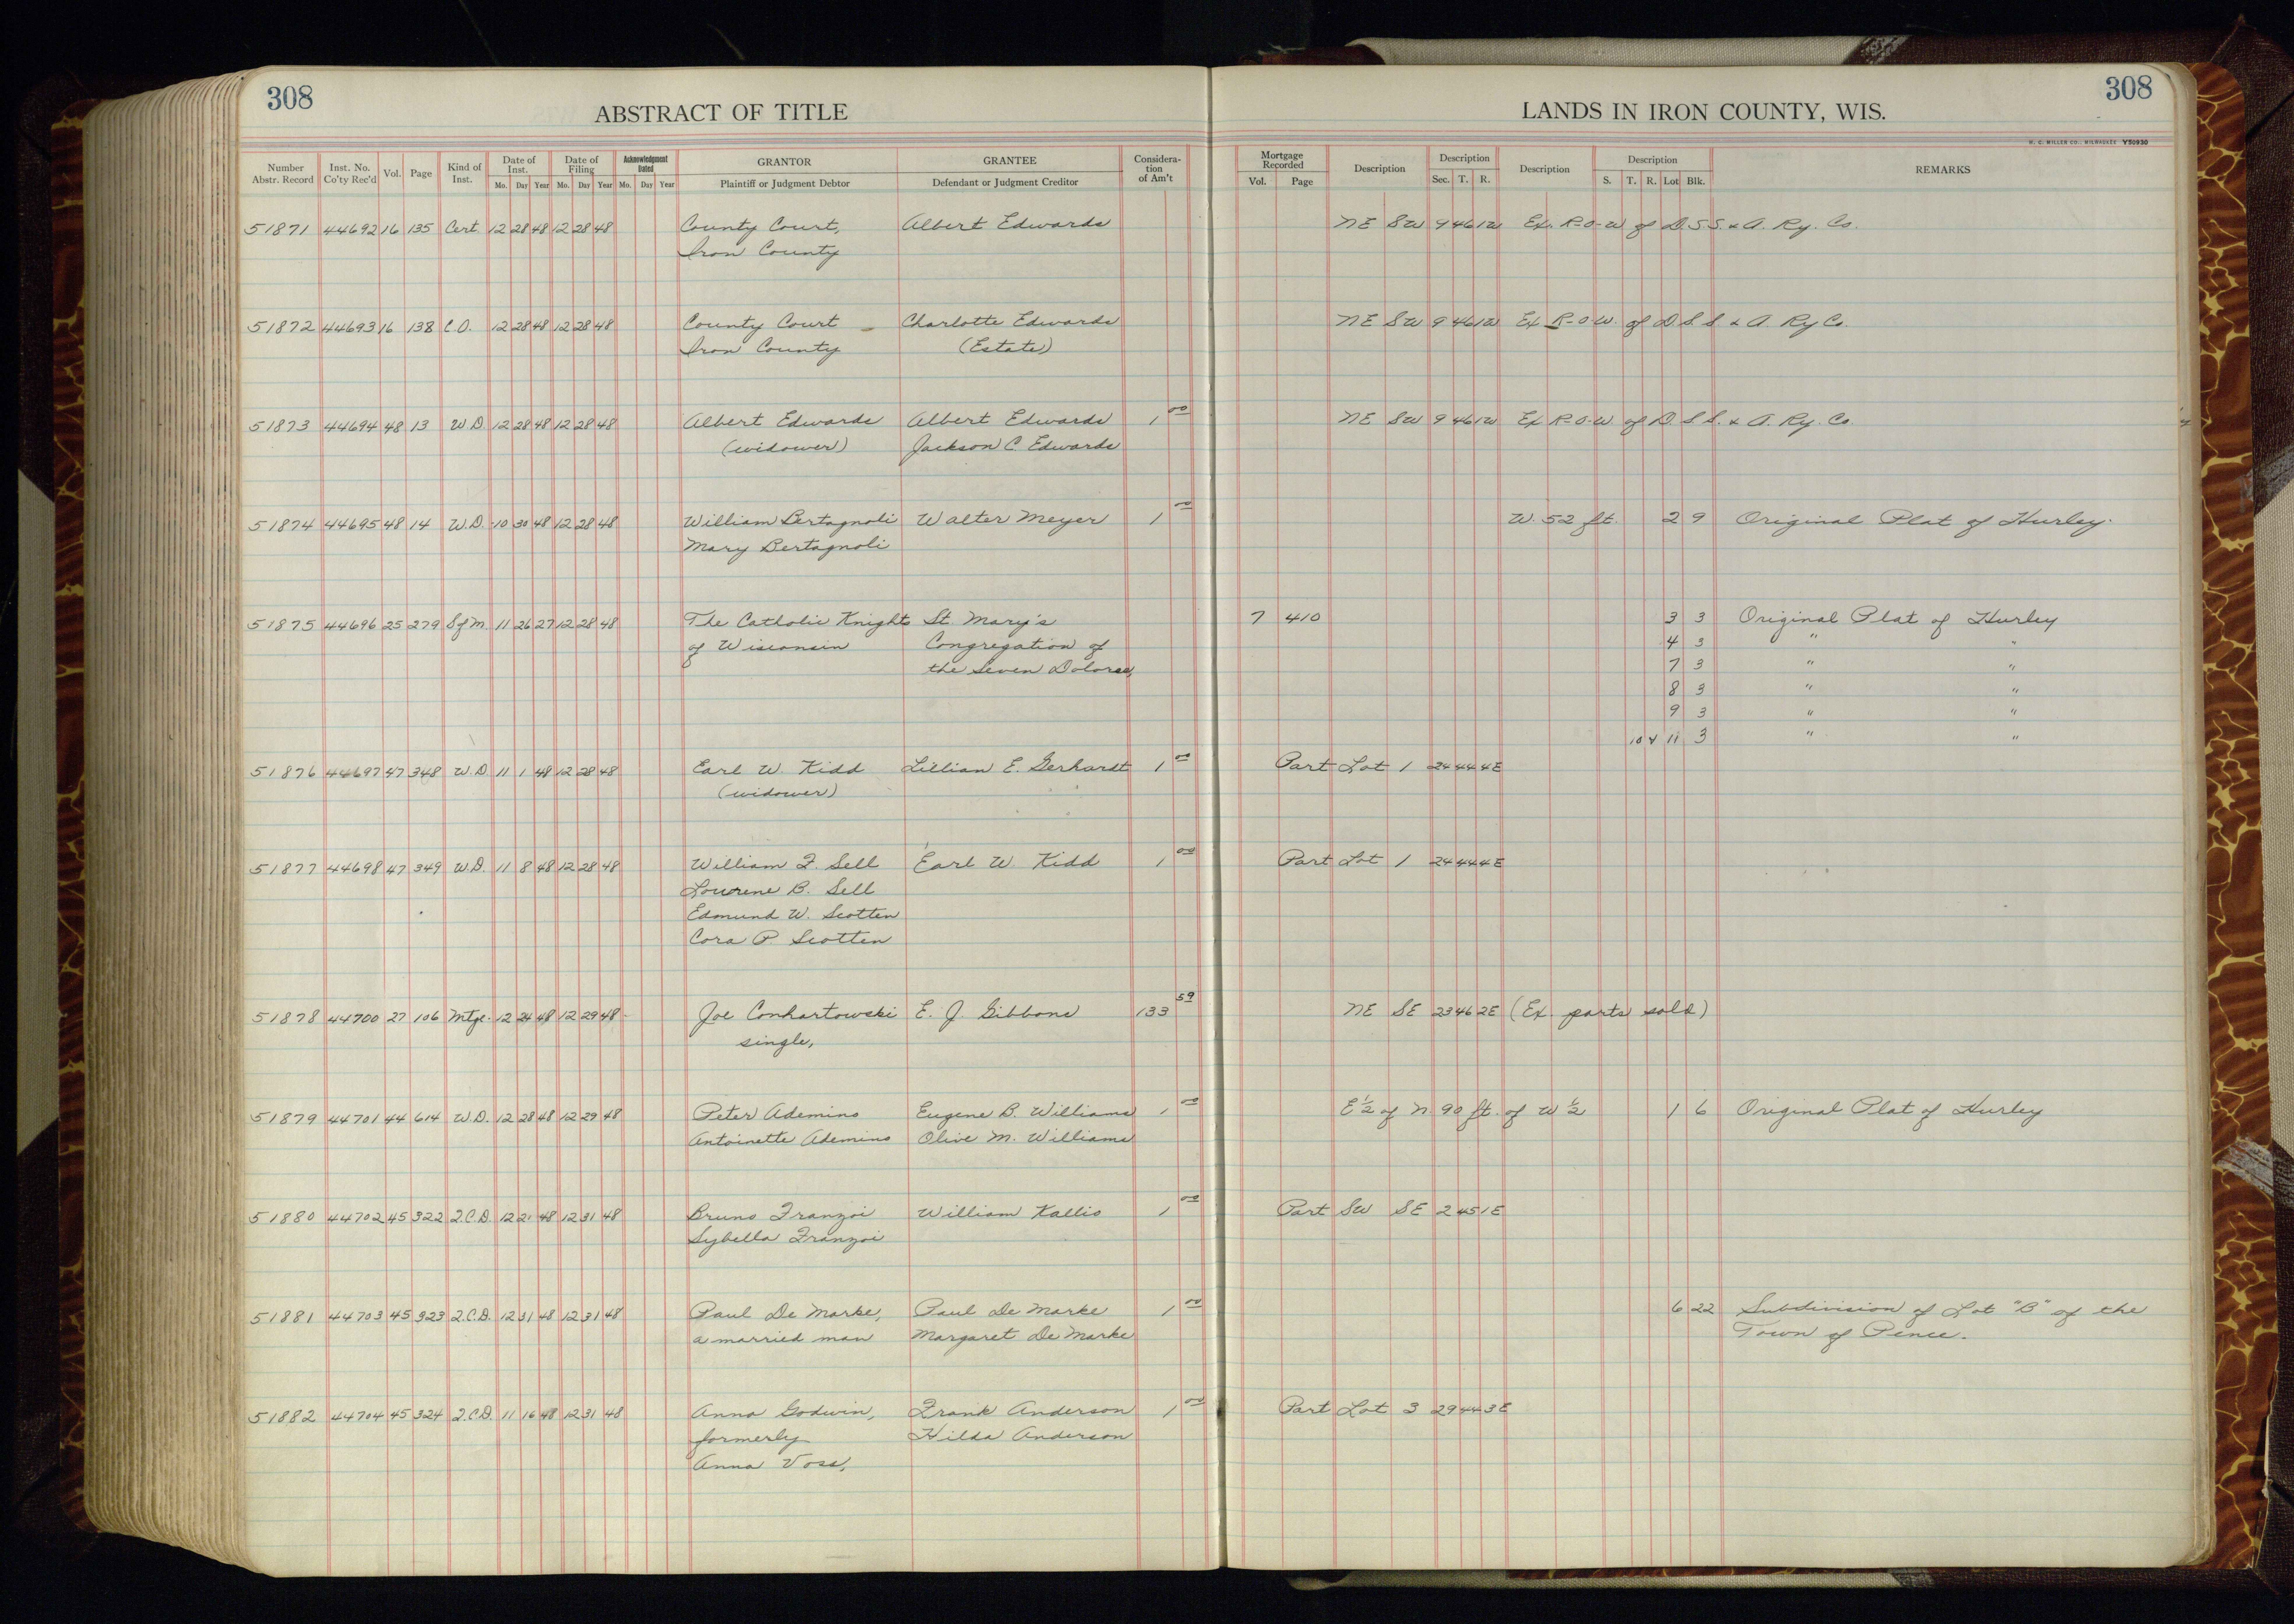 308
ABSTRACT OF TITLE
LANDS IN IRON COUNTY, WIS.
308
H. C. MILLER CO., MILWAUKEE Y50930
Number Abstr. Record | Inst. No. Co'ty Rec'd | Vol. | Page | Kind of Inst. | Date of Inst. Mo. Day Year | Date of Filing Mo. Day Year | Acknowledgment Dated Mo. Day Year | GRANTOR Plaintiff or Judgment Debtor | GRANTEE Defendant or Judgment Creditor | Considera-tion of Am't | Mortgage Recorded Vol. Page | Description | Description Sec. T. R. | Description | Description S. T. R. Lot Blk. | REMARKS
51871 44692 16 135 Cert. 12 28 48 12 28 48 County Court, Albert Edwards NE SW 9 46 1W Ex. R-O-W of D.S.S. & A. Ry. Co.
Iron County
51872 44693 16 138 C.O. 12 28 48 12 28 48 County Court Charlotte Edwards NE SW 9 46 1W Ex R-O-W. of D S. S. & A. Ry Co.
Iron County (Estate)
51873 44694 48 13 W.D 12 28 48 12 28 48 Albert Edwards Albert Edwards 1 00 NE SW 9 46 1W Ex R-O-W. of D. S. S. & A. Ry. Co.
(widower) Jackson C. Edwards
51874 44695 48 14 W.D. 10 30 48 12 28 48 William Bertagnoli Walter Meyer 1 00 W. 52 ft. 2 9 Original Plat of Hurley.
Mary Bertagnoli
51875 44696 25 279 S of M. 11 26 27 12 28 48 The Catholic Knights St. Mary's 7 410 3 3 Original Plat of Hurley
of Wisconsin Congregation of 4 3 " "
the Seven Dolores, 7 3 " "
8 3 " "
9 3 " "
10 & 11 3 " "
51876 44697 47 348 W.D 11 1 48 12 28 48 Earl W. Kidd Lillian E. Gerhardt 1 00 Part Lot 1 24 44 4E
(widower)
51877 44698 47 349 W.D. 11 8 48 12 28 48 William F. Sell Earl W. Kidd 1 00 Part Lot 1 24 44 4E
Lourene B. Sell
Edmund W. Scotten
Cora P. Scotten
51878 44700 27 106 Mtge. 12 24 48 12 29 48 Joe Conhartowski E. J. Gibbons 133 59 NE SE 23 46 2E (Ex. parts sold)
single,
51879 44701 44 614 W.D. 12 28 48 12 29 48 Peter Ademino Eugene B. Williams 1 00 E ½ of N. 90 ft. of W ½ 1 6 Original Plat of Hurley
Antoinette Ademino Olive M. Williams
51880 44702 45 322 Q.C.D. 12 21 48 12 31 48 Bruno Franzoi William Kallio 1 00 Part SW SE 2 45 1E
Sybella Franzoi
51881 44703 45 323 Q.C.D. 12 31 48 12 31 48 Paul De Marke, Paul De Marke 1 00 6 22 Subdivision of Lot "B" of the
a married man Margaret De Marke Town of Pence.
51882 44704 45 324 Q.C.D. 11 16 48 12 31 48 Anna Godwin, Frank Anderson 1 00 Part Lot 3 29 44 3E
formerly Hilda Anderson
Anna Voss,